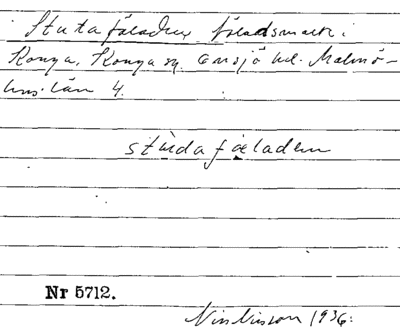 Stutafäladen fäladsmark i
Konga, Konga sn. Onsjö hd. Malmö-
hus. län 4.
studafæladen
Nr 5712.
Nilsson 1936.